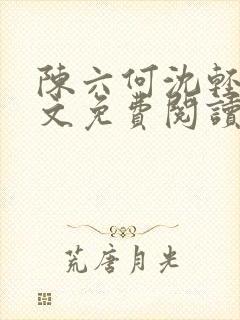 陳六何沈輕
文免費閱讀
荒唐月光